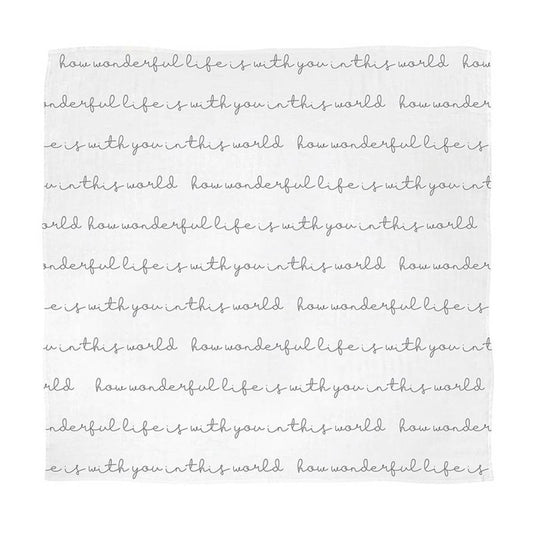 how wonderful life is with you in this world how
nderful life is with you in this world how wonder
e is with you in this world how wonderful life is
u in this world how wonderful life is with you in t
orld how wonderful life is with you in this world
onderful life is with you in this world how wonder
e is with you in this world how wonderful life is
u in this world how wonderful life is with you in t
rld how wonderful life is with you in this world
nderful life is with you in this world how wonder
e is with you in this world how wonderful life is